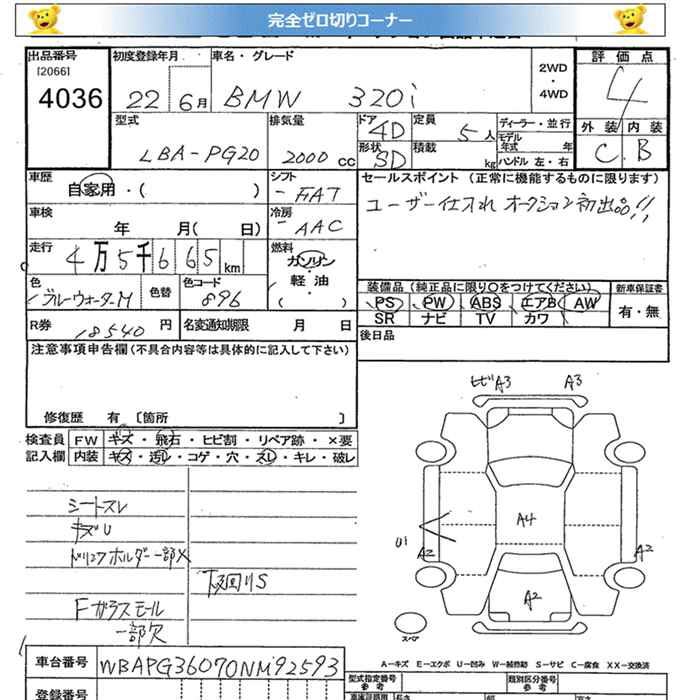 完全ゼロ切りコーナー
出品番号 初度登録年月 車名・グレード 評価点
[2066] 4036 22 6月 BMW 320i 2WD・4WD 4
型式 排気量 ドア 定員 ディーラー・並行 外装 内装
LBA-PG20 2000cc 4D 5人 モデル年式 年 C B
形状 SD 積載 kg ハンドル 左・右
車歴 シフト セールスポイント (正常に機能するものに限ります)
自家用・( ) FAT ユーザー仕入れ オークション初出品!!
車検 冷房
年 月( 日) AAC
走行 燃料
4万5千665km ガソリン・軽油・( )
色 色替 色コード 装備品 (純正品に限り○をつけてください) 新車保証書
ブルーウォーターM 896 PS PW ABS エアB AW 有・無
SR ナビ TV カワ
R券 18540円 名変通知期限 月 日 後日品
注意事項申告欄(不具合内容等は具体的に記入して下さい)
修復歴 有 [箇所 ]
検査員 FW キズ・飛石・ヒビ割・リペア跡・×要
記入欄 内装 キズ・汚レ・コゲ・穴・スレ・キレ・破レ
ヒビA3 A3
シートスレ
キズU
ドリンクホルダー一部×
下回りS
Fガラスモール
一部欠
U1 A2 A4 A2
A2
スペア
A-キズ E-エクボ U-凹み W-補修跡 S-サビ C-腐食 XX-交換済
車台番号 WBAPG36070NM92593 型式指定番号 類別区分番号
参考 参考
登録番号